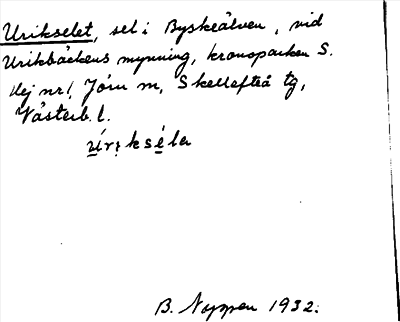 Urikselet, sel i Byskeälven, vid
Urikbäckens mynning, kronoparken S.
Hej nr 1, Jörn sn, Skellefteå tg,
Västerb. l.
B. Noppen 1932.